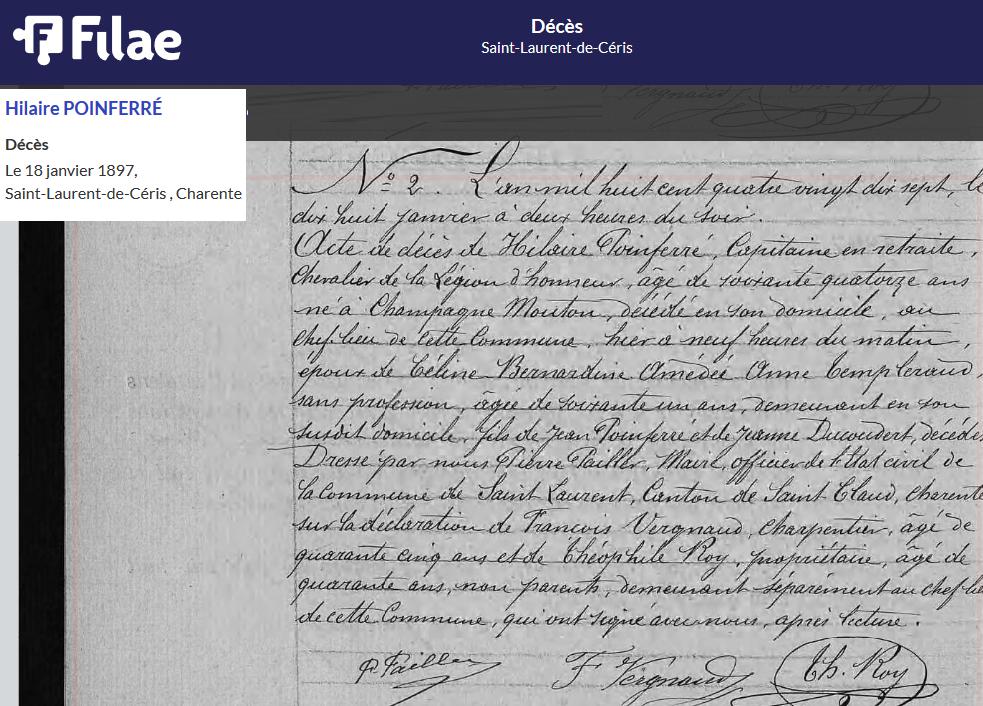 Filae
Décès
Saint-Laurent-de-Céris
Hilaire POINFERRÉ
Décès
Le 18 janvier 1897,
Saint-Laurent-de-Céris , Charente
Nº 2. L'an mil huit cent quatre vingt dix sept, le
dix huit janvier à deux heures du soir.
Acte de décès de Hilaire Poinferré, Capitaine en retraite,
Chevalier de la Légion d'honneur, âgé de soixante quatorze ans
né à Champagne Mouton, décédé en son domicile, au
chef-lieu de cette Commune, hier à neuf heures du matin,
époux de Céline Bernardine Amédée Anne Templeraud,
sans profession, âgée de soixante un ans, demeurant en son
susdit domicile, fils de Jean Poinferré et de Jeanne Ducoudert, décédés
Dressé par nous Pierre Pailler, Maire, officier de l'Etat civil de
la Commune de Saint Laurent, Canton de Saint Claud, Charente
sur la déclaration de François Vergnaud, charpentier, âgé de
quarante cinq ans et de Théophile Roy, propriétaire, âgé de
quarante ans, non parents, demeurant séparément au chef lie
de cette Commune, qui ont signé avec nous, après lecture.
P. Pailler F Vergnaud Th. Roy